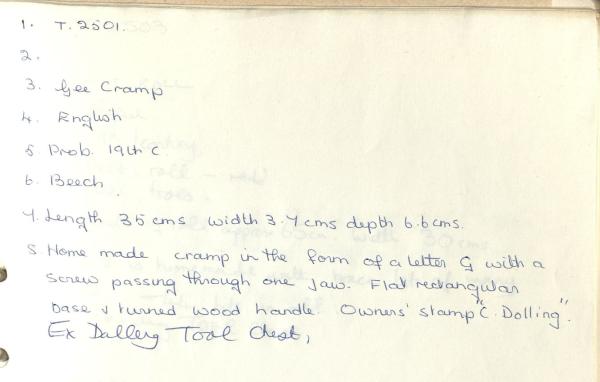 1. T. 2501.
2.
3. Gee Cramp
4. English
5 Prob. 19th C
6. Beech
7. Length 35 cms width 3.7 cms depth 6.6 cms.
8 Home made cramp in the form of a letter G with a
screw passing through one jaw. Flat rectangular
base & turned wood handle. Owners' stamp "C. Dolling".
Ex Dallery Tool Chest,